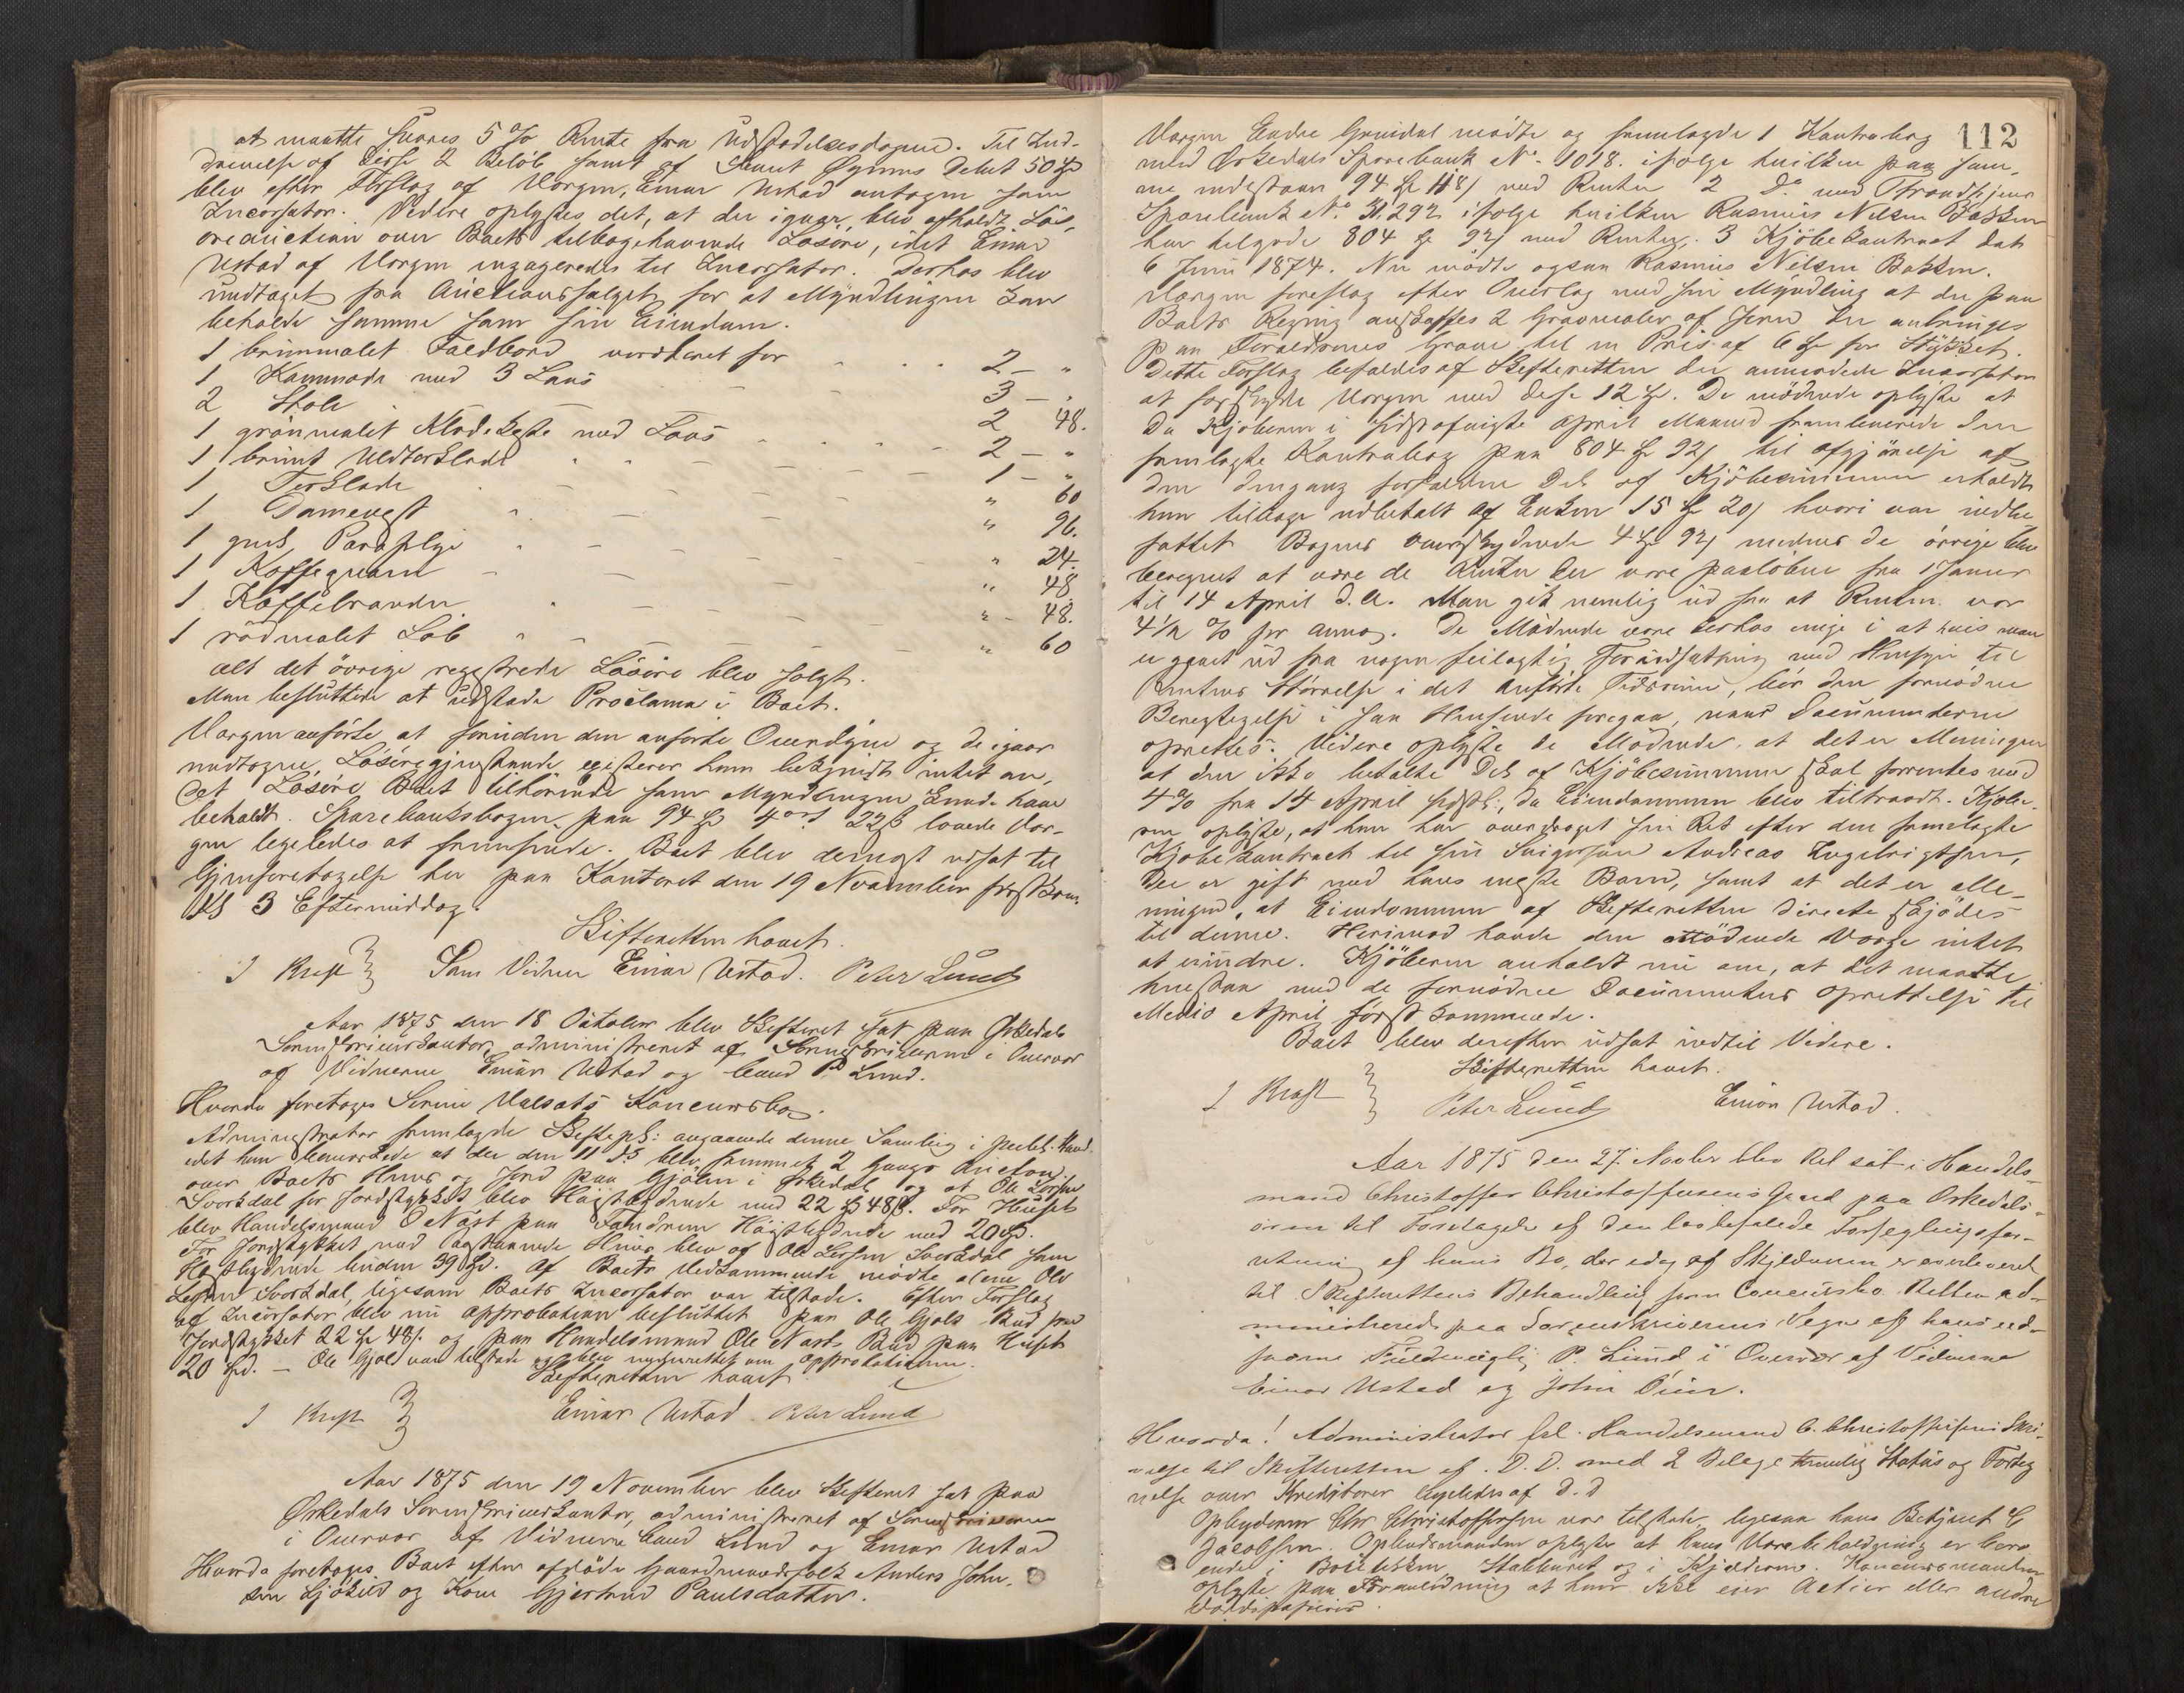 at maatte svares 5 % Rente fra Udstædelsesdagene. Til Ind-
drivelse af disse 2 Beløb samt af Knut Øyens Debet 50 Spd
blev efter Forslag af Værgen, Einar Ustad antagen som
Incassator. Videre oplystes det, at der igaar blev afholdt Løs-
øreauction over Boets tilbageværende Løsøre, idet Einar
Ustad af Værgen engageredes til Incassator. Derhos blev
undtaget fra Auctionssalget for at Myndlingen kan
beholde samme som sin Eiendom.
1 brunmalet Foldbord vurderet for 2 — "
1 Kommode med 3 Laas 3 — "
2 Stole 2 48.
1 grønmalet Klædekiste med Laas 2 — "
1 brunt Uldtørklæde 1 — "
1 Tørklæde " 60
1 Damevest " 96.
1 grøn Paraplyi " 24.
1 Kaffeqværn " 48
1 Kaffebrænder " 48.
1 rødmalet Løb " 60
alt det øvrige registrede Løsøre blev solgt.
Man besluttede at udstæde Proclama i Boet.
Værgen anførte at foruden den anførte Overdyne og de igaar
undtagne Løsøregjenstande existerer ham bekjendt intet an-
det Løsøre Boet tilhørende som Myndlingen kunde have
beholdt. Sparebanksbogen paa 94 Spd 4 ort 22 s lovede Vær-
gen ligeledes at fremsende. Boet blev dernæst udsat til
Gjenforetagelse her paa Kontoret den 19 November førstkom.
Kl 3 Eftermiddag.
Skifteretten hævet.
J Kraft Som Vidner Einar Ustad. Peter Lund
Aar 1875 den 18 October blev Skifteret sat paa Ørkedals
Sorenskriverkontor, administreret af Sorenskriveren i Overvær
af Vidnerne Einar Ustad og Cand P. Lund.
Hvorda foretoges Konkursbo.
Administrator fremlagde Skiftepk: angaaende denne Samling i
idet han bemærkede at der den 11 ds blev fremmet 2 Gangs Auction
over Boets Huus og Jord paa Gjølme i Ørkedal og at Ole Larsen
Svorkdal for Jordstykket blev Høistbydende med 22 Spd 48 s. For Huset
blev Handelsmand O Næst paa Høistbydende med 20 Spd.
For Jordstykket med paastaaende Huus blev af Ole Larsen Svorkdal som
Høistbydende buden 39 Spd. Af Boets Vedkommende mødte alene Ole
Larsen Svorkdal, ligesom Boets Incassator var tilstede. Efter Forslag
af Incassator blev nu Approbation besluttet paa Ole Gjøls Bud paa
Jordstykket 22 Spd 48 s. og paa Handelsmand Ole Næsts Bud paa Huset
20 Spd. — Ole Gjøl var tilstede og blev underrettet om Approbationen.
Skifteretten hævet
J Kraft Einar Ustad Peter Lund
Aar 1875 den 19 November blev Skifteret sat paa
Ørkedals Sorenskriverkontor, administreret af Sorenskriveren
i Overvær af Vidnerne Cand Lund og Einar Ustad
Hvorda foretoges Boet efter afdøde Gaardmandsfolk Anders John-
sen og Kone Gjertrud Paulsdatter.
112
Værgen Endre Grindal mødte og fremlagde 1 Kontrabog
med Ørkedals Sparebank No. 1018. ifølge hvilken paa sam-
me indestaar 94 Spd 118 s med Renter 2 Do med Trondhjems
Sparebank No. 31.292 ifølge hvilken Rasmus Nilsen Bakken
har tilgode 804 Spd 92 s med Renter, 3 Kjøbekontract dat
6 Juni 1874. Nu mødte ogsaa Rasmus Nilsen Bakken.
Værgen foreslog efter Overlæg med sin Myndling at der paa
Boets Regning anskaffes 2 Gravmæler af Jern der anbringes
paa Forældrenes Grave til en Pris af 6 Spd for Stykket.
Dette Forslag bifaldes af Skifteretten der anmodede Incassator
at forskyde Værgen med disse 12 Spd. De mødende oplyste at
da Kjøberen i sidstafvigte April Maaned fremleverede den
fremlagte Kontrabog paa 804 Spd 92 s til Afgjørelse af
den dengang forfaldne Del af Kjøbesummen erholdt
han tilbage udbetalt af Enken 15 Spd 20 s hvori var indbe-
fattet Bogens overskydende 4 Spd 92 s medens de øvrige blev
beregnet at være de Renter der vare paaløbne fra 1 Januar
til 14 April d.A. Man gik nemlig ud fra at Renten var
4 1/2 % pr anno. De Mødende vare derhos enige i at hvis man
er gaaet ud fra nogen feilagtig Forudsætning med Hensyn til
Rentens Størrelse i det anførte Tidsrum, bør den fornødne
Berigtigelse i saa Henseende foregaa, naar Documenterne
oprettes. Videre oplyste de Mødende, at det er Meningen
at den ikke betalte Del af Kjøbesummen skal forrentes med
4 % fra 14 April sidstl., da Eiendommen blev tiltraadt. Kjøbe-
ren oplyste, at han har overdraget sin Ret efter den fremlagte
Kjøbekontract til sin Svigersøn Andreas Engebrigtsen,
der er gift med hans Barn, samt at det er
Meningen, at Eiendommen af Skifteretten directe skjødes
til denne. Herimod havde den Mødende Værge intet
at erindre. Kjøberen anholdt nu om, at det maatte
henstaa med de fornødne Documenters Oprettelse til
Medio April førstkommende.
Boet blev derefter udsat indtil Videre.
Skifteretten hævet.
J Kraft Peter Lund Einar Ustad.
Aar 1875 den 27. Novbr blev Ret sat i Handels-
mand Christoffer Christoffersens Gaard paa Orkedals-
øren til Foretagelse af den lovbefalede Forseglingsfor-
retning af hans Bo, der idag af Skyldneren er overleveret
til Skifterettens Behandling som Concursbo. Retten ad-
ministreredes paa Sorenskriverens Vegne af hans ed-
svorne Fuldmægtig P. Lund i Overvær af Vidnerne
Einar Ustad og John
Hvorda! Administrator frl. Handelsmand C. Christoffersens Skri-
velse til Skifteretten af D. D. med 2 Bilage nemlig Status og Forteg-
nelse over Kreditorer ligeledes af D. D
Opbyderen Chr Christoffersen var tilstede, ligesaa hans Betjent G
Jacobsen. Opbudsmanden oplyste at hans Varebeholdning er bero-
ende i Butikken, Stabburet og i Kjælderen. Konkursmanden
oplyste paa Foranledning at han ikke eier Actier eller andre
Værdipapirer.